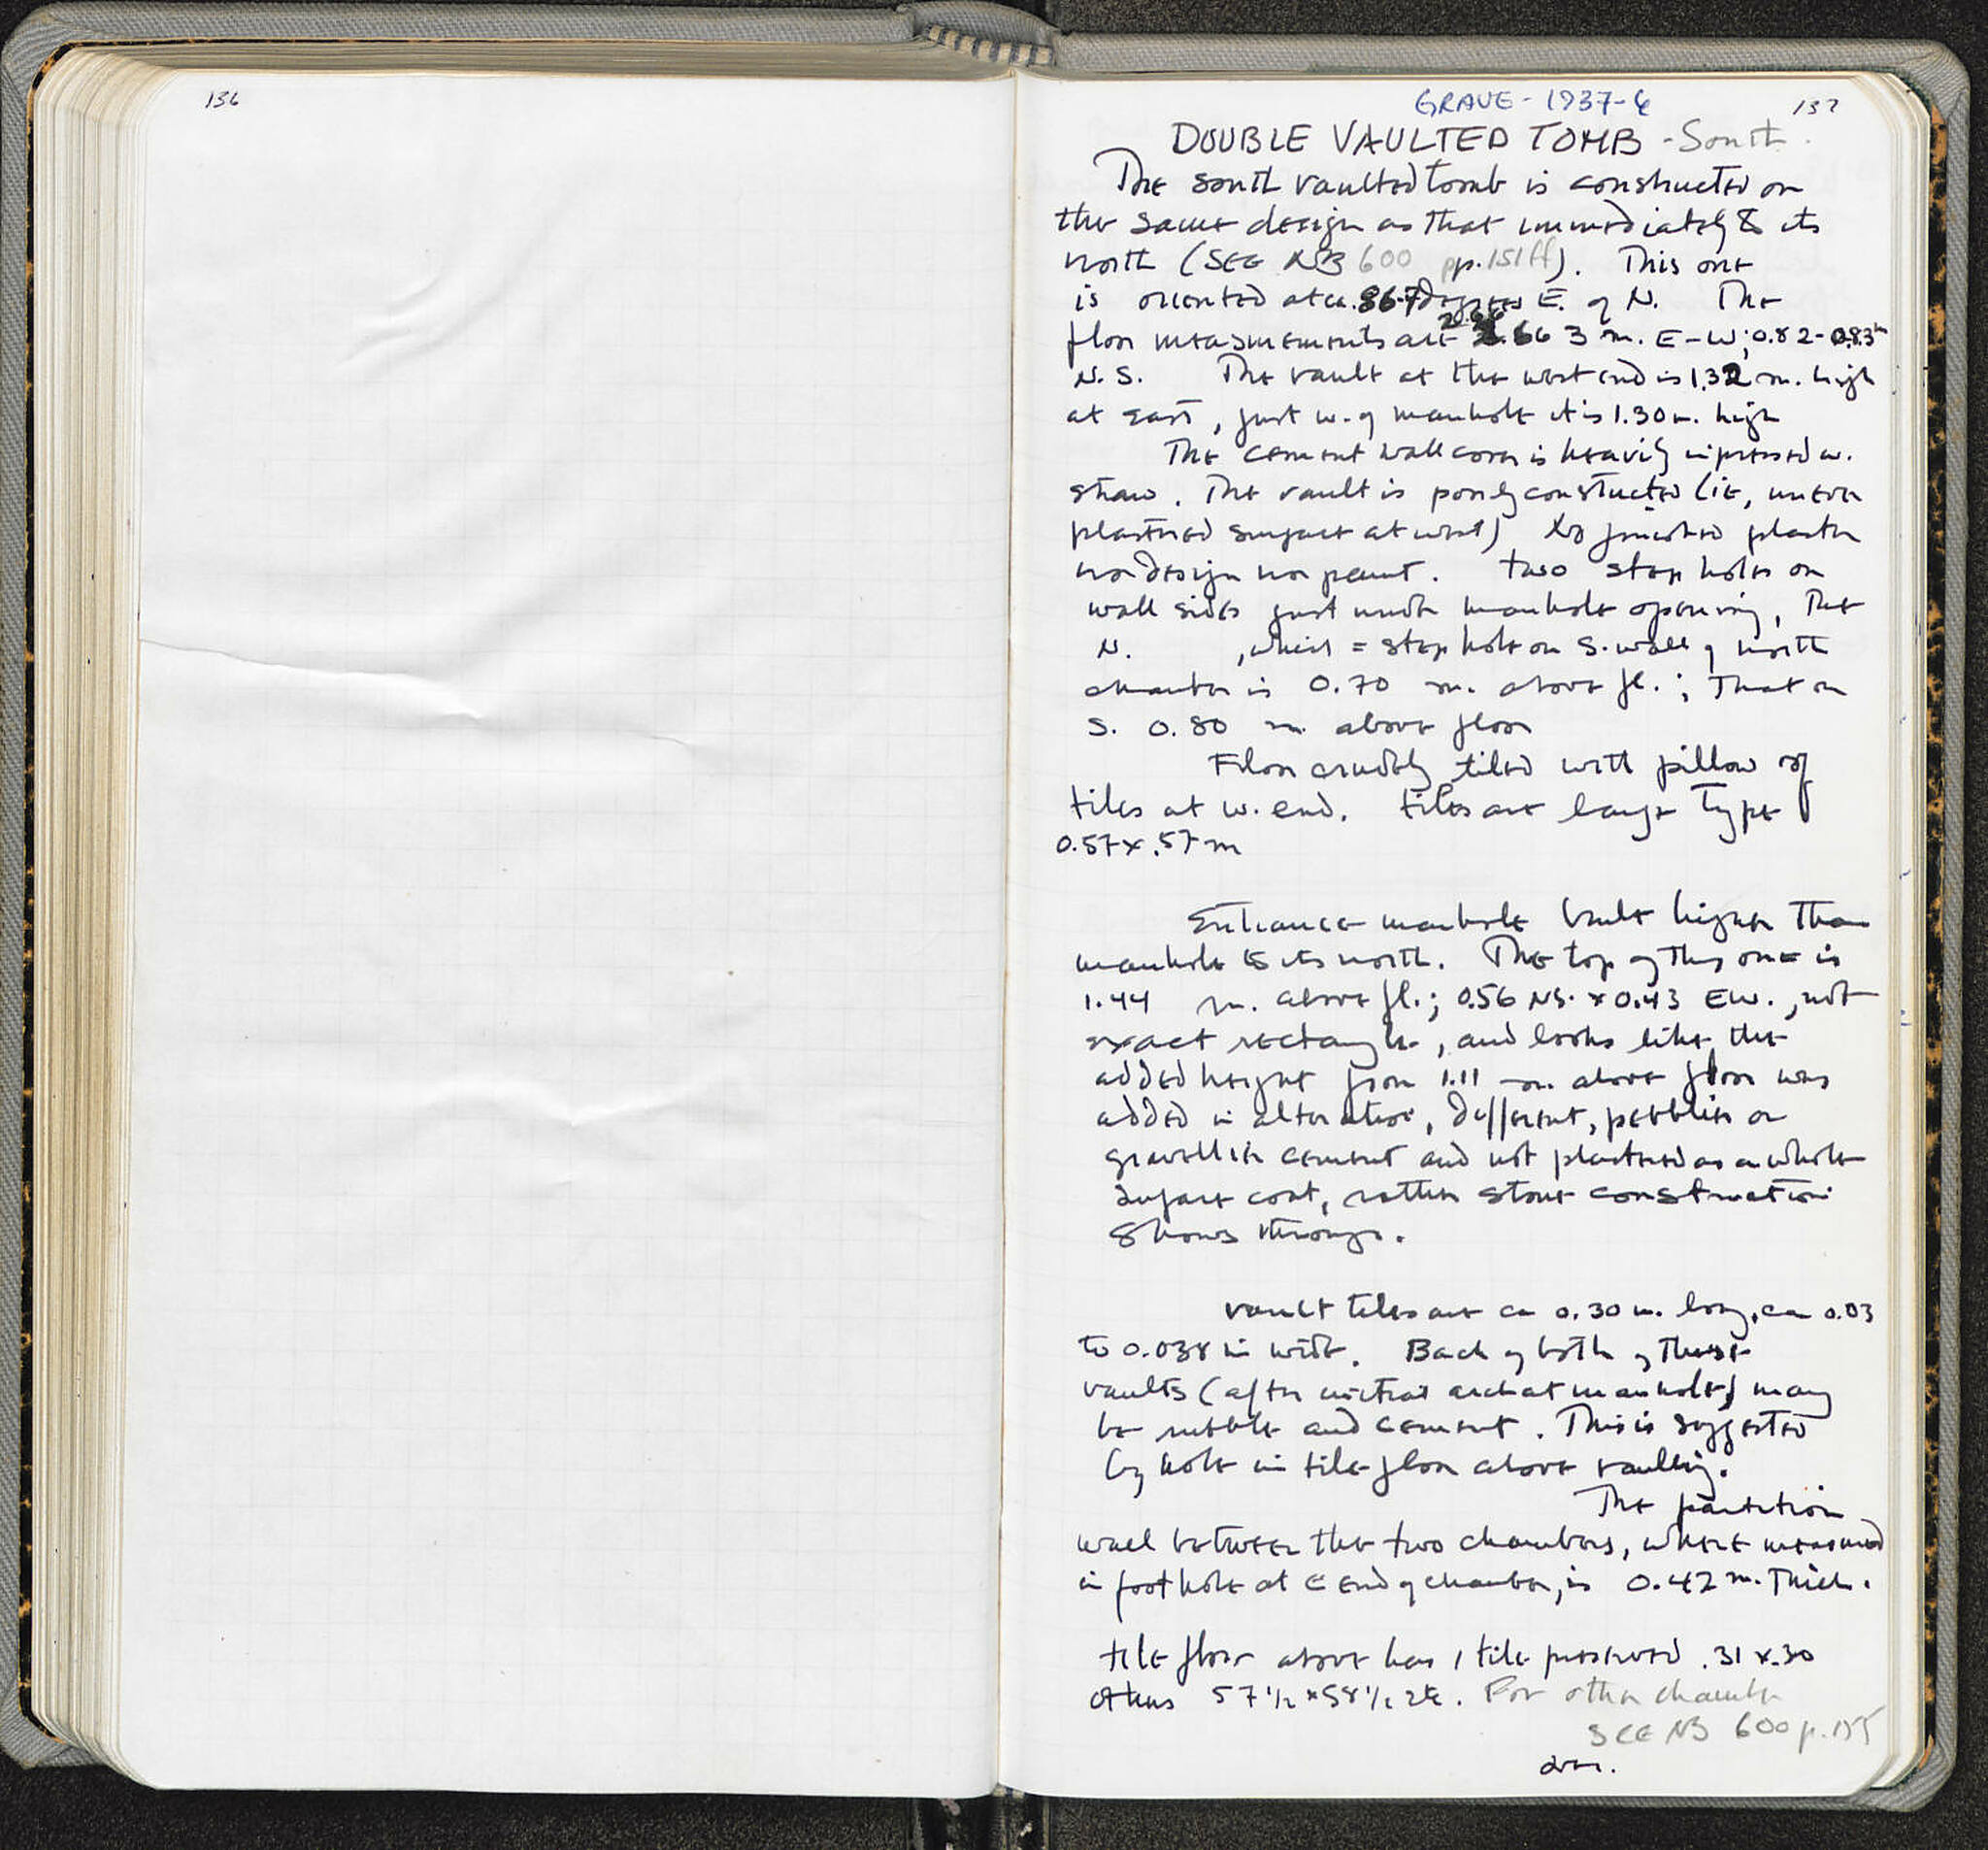 136
GRAVE - 1937-6
137
DOUBLE VAULTED TOMB - South.
The south vaulted tomb is constructed on
the same design as that immediately to its
north (SEE NB 600 pp. 151ff). This one
is oriented at ca. 86.7 degrees E. of N. The
floor measurements are 2.663 m. E-W; 0.82-0.83 m
N.S. The vault at the west end is 1.32 m. high
at east, just w. of manhole it is 1.30 m. high
The cement wall cover is heavily impressed w.
straw. The vault is poorly constructed (ie, uneven
plastered surface at west) No finished plaster
nor design nor paint. two step holes on
wall sides just under manhole opening, The
N. , which = step hole on S. wall of north
chamber is 0.70 m. above fl.; That on
S. 0.80 m above floor
Floor crudely tiled with pillow of
tiles at w. end. tiles are large type
0.57 x .57 m
Entrance manhole built higher than
manhole to its north. The top of this one is
1.44 m. above fl.; 0.56 NS. x 0.43 EW., not
exact rectangle, and looks like the
added height from 1.11 m. above floor was
added in alteration, different, pebblier or
gravellier cement and not plastered as a whole
surface coat, rather stone construction
shows through.
vault tiles are ca 0.30 m. long, ca 0.03
to 0.038 in width. Back of both of these
vaults (after initial arch at manhole) may
be rubble and cement. This is suggested
by hole in tile floor above vaulting.
The partition
wall between the two chambers, where measured
in foot hole at E end of chamber, is 0.42 m. Thick.
tile floor above has 1 tile preserved .31 x .30
others 57 1/2 x 58 1/2 etc. For other chamber
SEE NB 600 p. 155